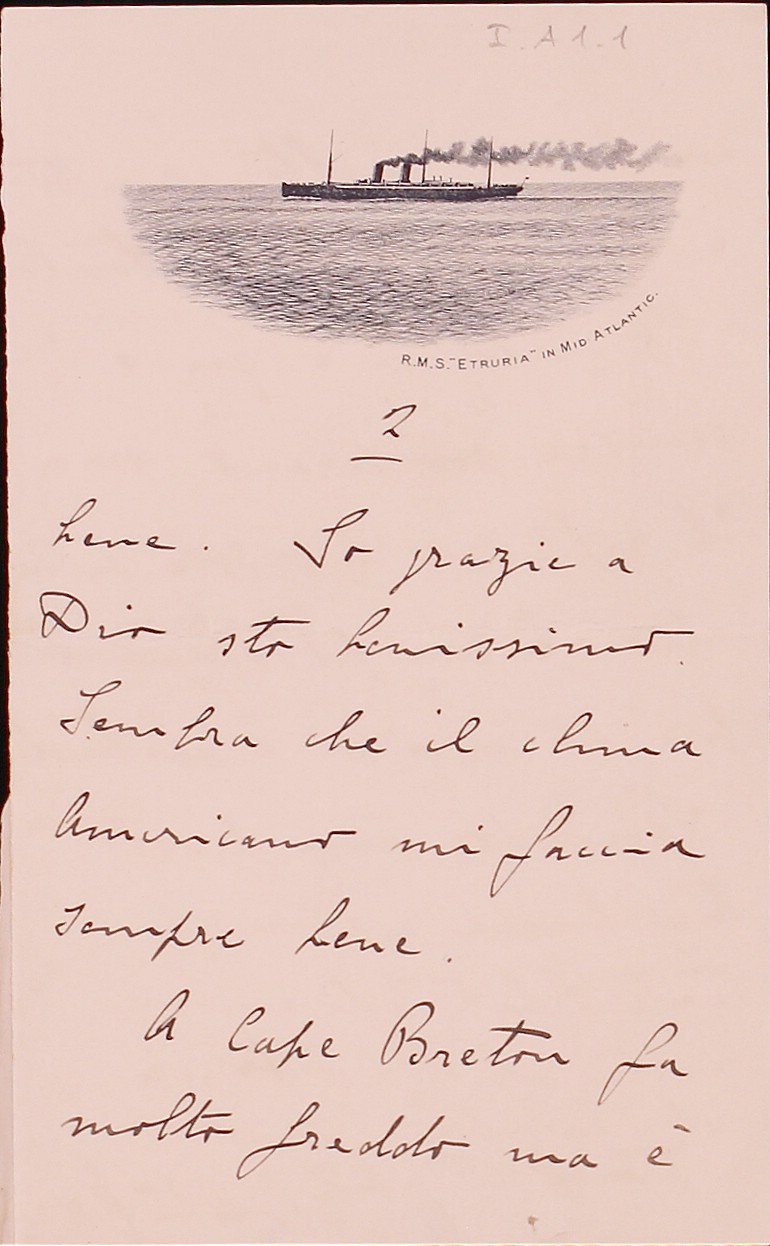 I. A 1. 1
R.M.S. "ETRURIA" IN MID ATLANTIC.
2
bene. Io grazie a
Dio sto benissimo.
Sembra che il clima
Americano mi faccia
sempre bene.
A Cape Breton fa
molto freddo ma è